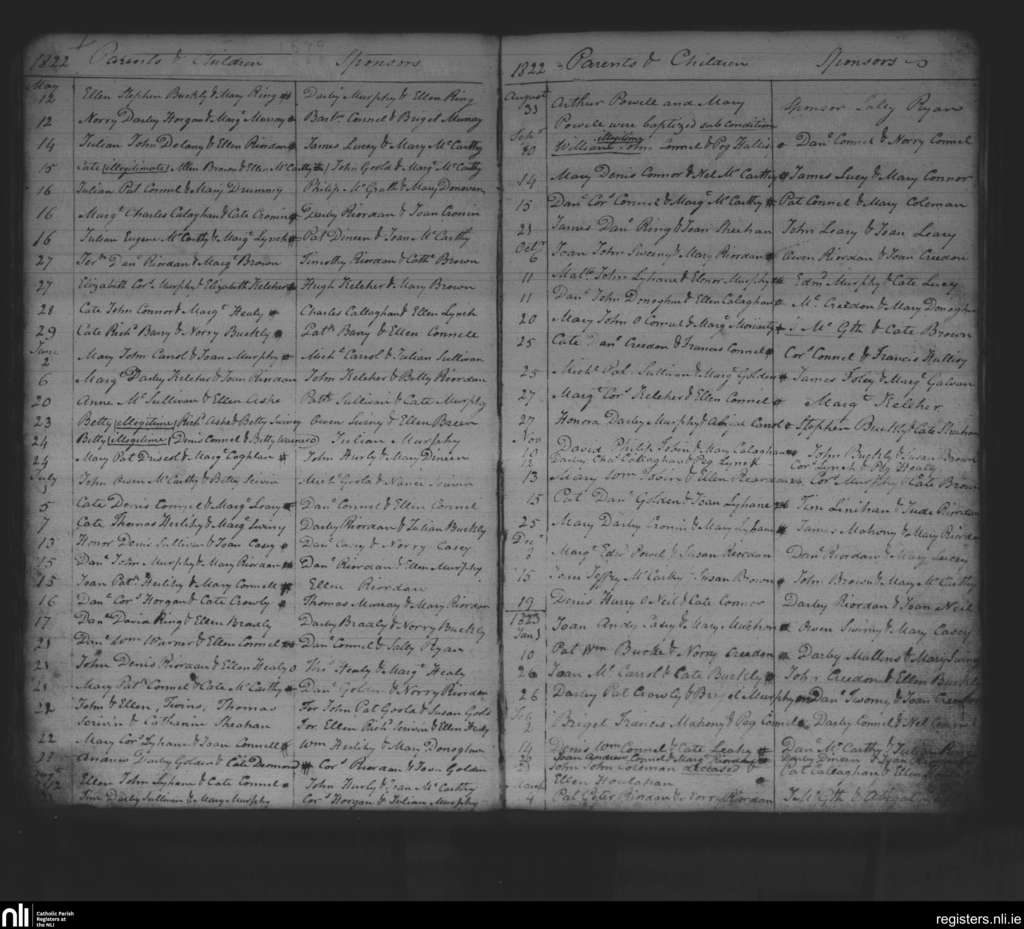 1822 Parents & Children Sponsors
May
12 Ellen Stephen Buckly & Mary Ring Darby Murphy & Ellen Ring
12 Norry Darby Horgan & Marg.t Murray Bart.w Connel & Briget Murray
14 Julian John Delany & Ellen Riordan James Lucey & Mary McCarthy
15 Cate (illegitimate) Allen Brown & Ellen McCarthy John Goold & Marg.t McCarthy
16 Julian Pat Connel & Mary Drummy Philip McGrath & Mary Donovan
16 Marg.t Charles Calaghan & Cate Cronin Darby Riordan & Joan Cronin
16 Julian Eugene McCarthy & Marg.t Lynch Pat Dineen & Joan McCarthy
27 Dan.l Riordan & Marg.t Brown Timothy Riordan & Cath.e Brown
27 Elizabeth Cor.s Murphy & Elizabeth Keleher Hugh Keleher & Mary Brown
28 Cate John Connor & Marg.t Healy Charles Callaghan & Ellen Lynch
29 Cate Rich.d Barry & Norry Buckly Barry & Ellen Connell
June
2 Mary John Carrol & Joan Murphy Mich.l Carrol & Julian Sullivan
6 Marg.t Darby Keleher & Joan Riordan John Keleher & Betty Riordan
20 Anne Sullivan & Ellen Ashe Patt Sullivan & Cate Murphy
23 Betty (illegitime) Rich.d Ashe & Betty Swiney Owen Swiny & Ellen Breen
24 Betty (illegitime) Denis Connel & Betty Julian Murphy
24 Mary Pat Driscol & Marg.t Coghlan John Hurly & Mary Dineen
July
John Owen McCarthy & Betty Scivin Mich Goold & Nance Scivin
5 Cate Denis Connel & Marg.t Leary Dan.l Connel & Ellen Connel
7 Cate Thomas Herlihy & Marg.t Swiny Darby Riordan & Julian Buckly
13 Honor Denis Sullivan & Joan Casey Dan.l Casey & Norry Casey
15 Dan.l John Murphy & Mary Riordan Dan.l Riordan & Ellen Murphy
15 Joan Pat.k Herlihy & Mary Connell Ellen Riordan
16 Dan.l Cor.s Horgan & Cate Crowly Thomas Murray & Mary Riordan
17 Dan.l David Ring & Ellen Bradly Darby Bradly & Norry Buckly
21 Dan.l Wm Warner & Ellen Connel Dan.l Connel & Sally Ryan
21 John Denis Riordan & Ellen Healy Tho.s Healy & Marg.t Healy
21 Mary Pat.k Connel & Cate McCarthy Dan.l Golden & Norry Riordan
22 John & Ellen, Twins, Thomas For John Pat Goold & Susan Goold
Scrivin & Catherin Sheahan For Ellen Rich.d Scrivin & Ellen Healy
22 Mary Cor.s Lyhane & Joan Connell Wm Herlihy & Mary Donoghue
Andrew Darby Golden & Cate Desmond Cor.s Riordan & Joan Golden
Ellen John Lyhane & Cate Connel John Hurly & Joan McCarthy
Darby Sullivan & Mary Murphy Cor.s Horgan & Julian Murphy
1822 Parents & Children Sponsors
August
31 Arthur Powell and Mary Sponsor Ryan
Powell were baptized sub condition
Sept.r
10 William illegitime John Connel & Peg Hallis Dan.l Connel & Norry Connel
14 Mary Denis Connor & Nel McCarthy James Lucy & Mary Connor
15 Dan.l Cor.s Connel & Marg.t McCarthy Pat Connel & Mary Coleman
21 James Dan.l Ring & Joan Sheehan John Leary & Joan Leary
Oct.r
6 Joan John Sweeny & Mary Riordan Owen Riordan & Joan Creedon
11 John Lyhane & Elnor Murphy Edm.d Murphy & Cate Lucey
11 Dan.l John Donoghue & Ellen Calaghan Creedon & Mary Donoghue
20 Mary John O Connel & Marg.t Moriarty & Cate Brown
25 Cate Creedon & Frances Connel Cor.s Connel & Francis
25 Mich.l Sullivan & Marg.t Golden James Foley & Marg.t Galvan
27 Marg.t Cor.s Keleher & Ellen Connel Marg.t Keleher
27 Honora Darby Murphy & Carrol Stephen Buckly & Cate Sheehan
Nov
10 David Philip John & Mary Calaghan John Buckly & Susan Brown
12 Darby Cha.s Callaghan & Peg Lynch Cor.s Lynch & Peg Healy
13 Mary & Ellen Reardan Cor.s Murphy & Cate Brown
15 Pat Dan.l Golden & Joan Lyhane Tim Linehan & Jude Riordan
25 Mary Darby Cronin & Mary Lyhane James Mahony & Mary Riordan
Dec.r
2 Marg.t Edw.d Powel & Susan Riordan Dan.l Riordan & Mary Lucey
15 Joan Jeffry McCarthy Susan Brown John Brown & Mary McCarthy
19 Denis Harry O Neil & Cate Connor Darby Riordan & Joan Neil
1823
Jan 1 Joan Andy Casey & Mary Owen Swiny & Mary Casey
10 Pat Wm Burke & Norry Creedon Darby Mullins & Mary Swiny
26 Joan Carrol & Cate Buckly John Creedon & Ellen Buckly
26 Darby Pat Crowly & Briget Murphy Dan.l Twomy & Joan
Feb
2 Briget Francis Mahony & Peg Connel Darby Connel & Nel Connel
14 Denis Wm Connel & Cate Leahy Dan.l McCarthy & Julian Ring
Joan Andrew Connel & Mary Riordan Darby Dineen & Joan
John Coleman deceased & Pat Callaghan & Ellen
Ellen Houlahan
March
4 Pat Peter Riordan & Norry Riordan
nli Catholic Parish
Registers at
the NLI
registers.nli.ie